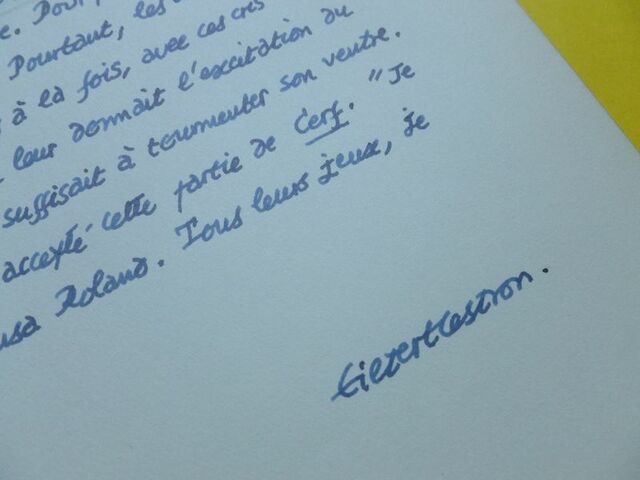 e. Pour
Pourtant, les
à la fois, avec ces cris
leur donnait l'excitation du
suffisait à tourmenter son ventre.
accepté cette partie de Cerf. "Je
usa Roland. Tous leurs jeux, je
Gilbert Cestron.